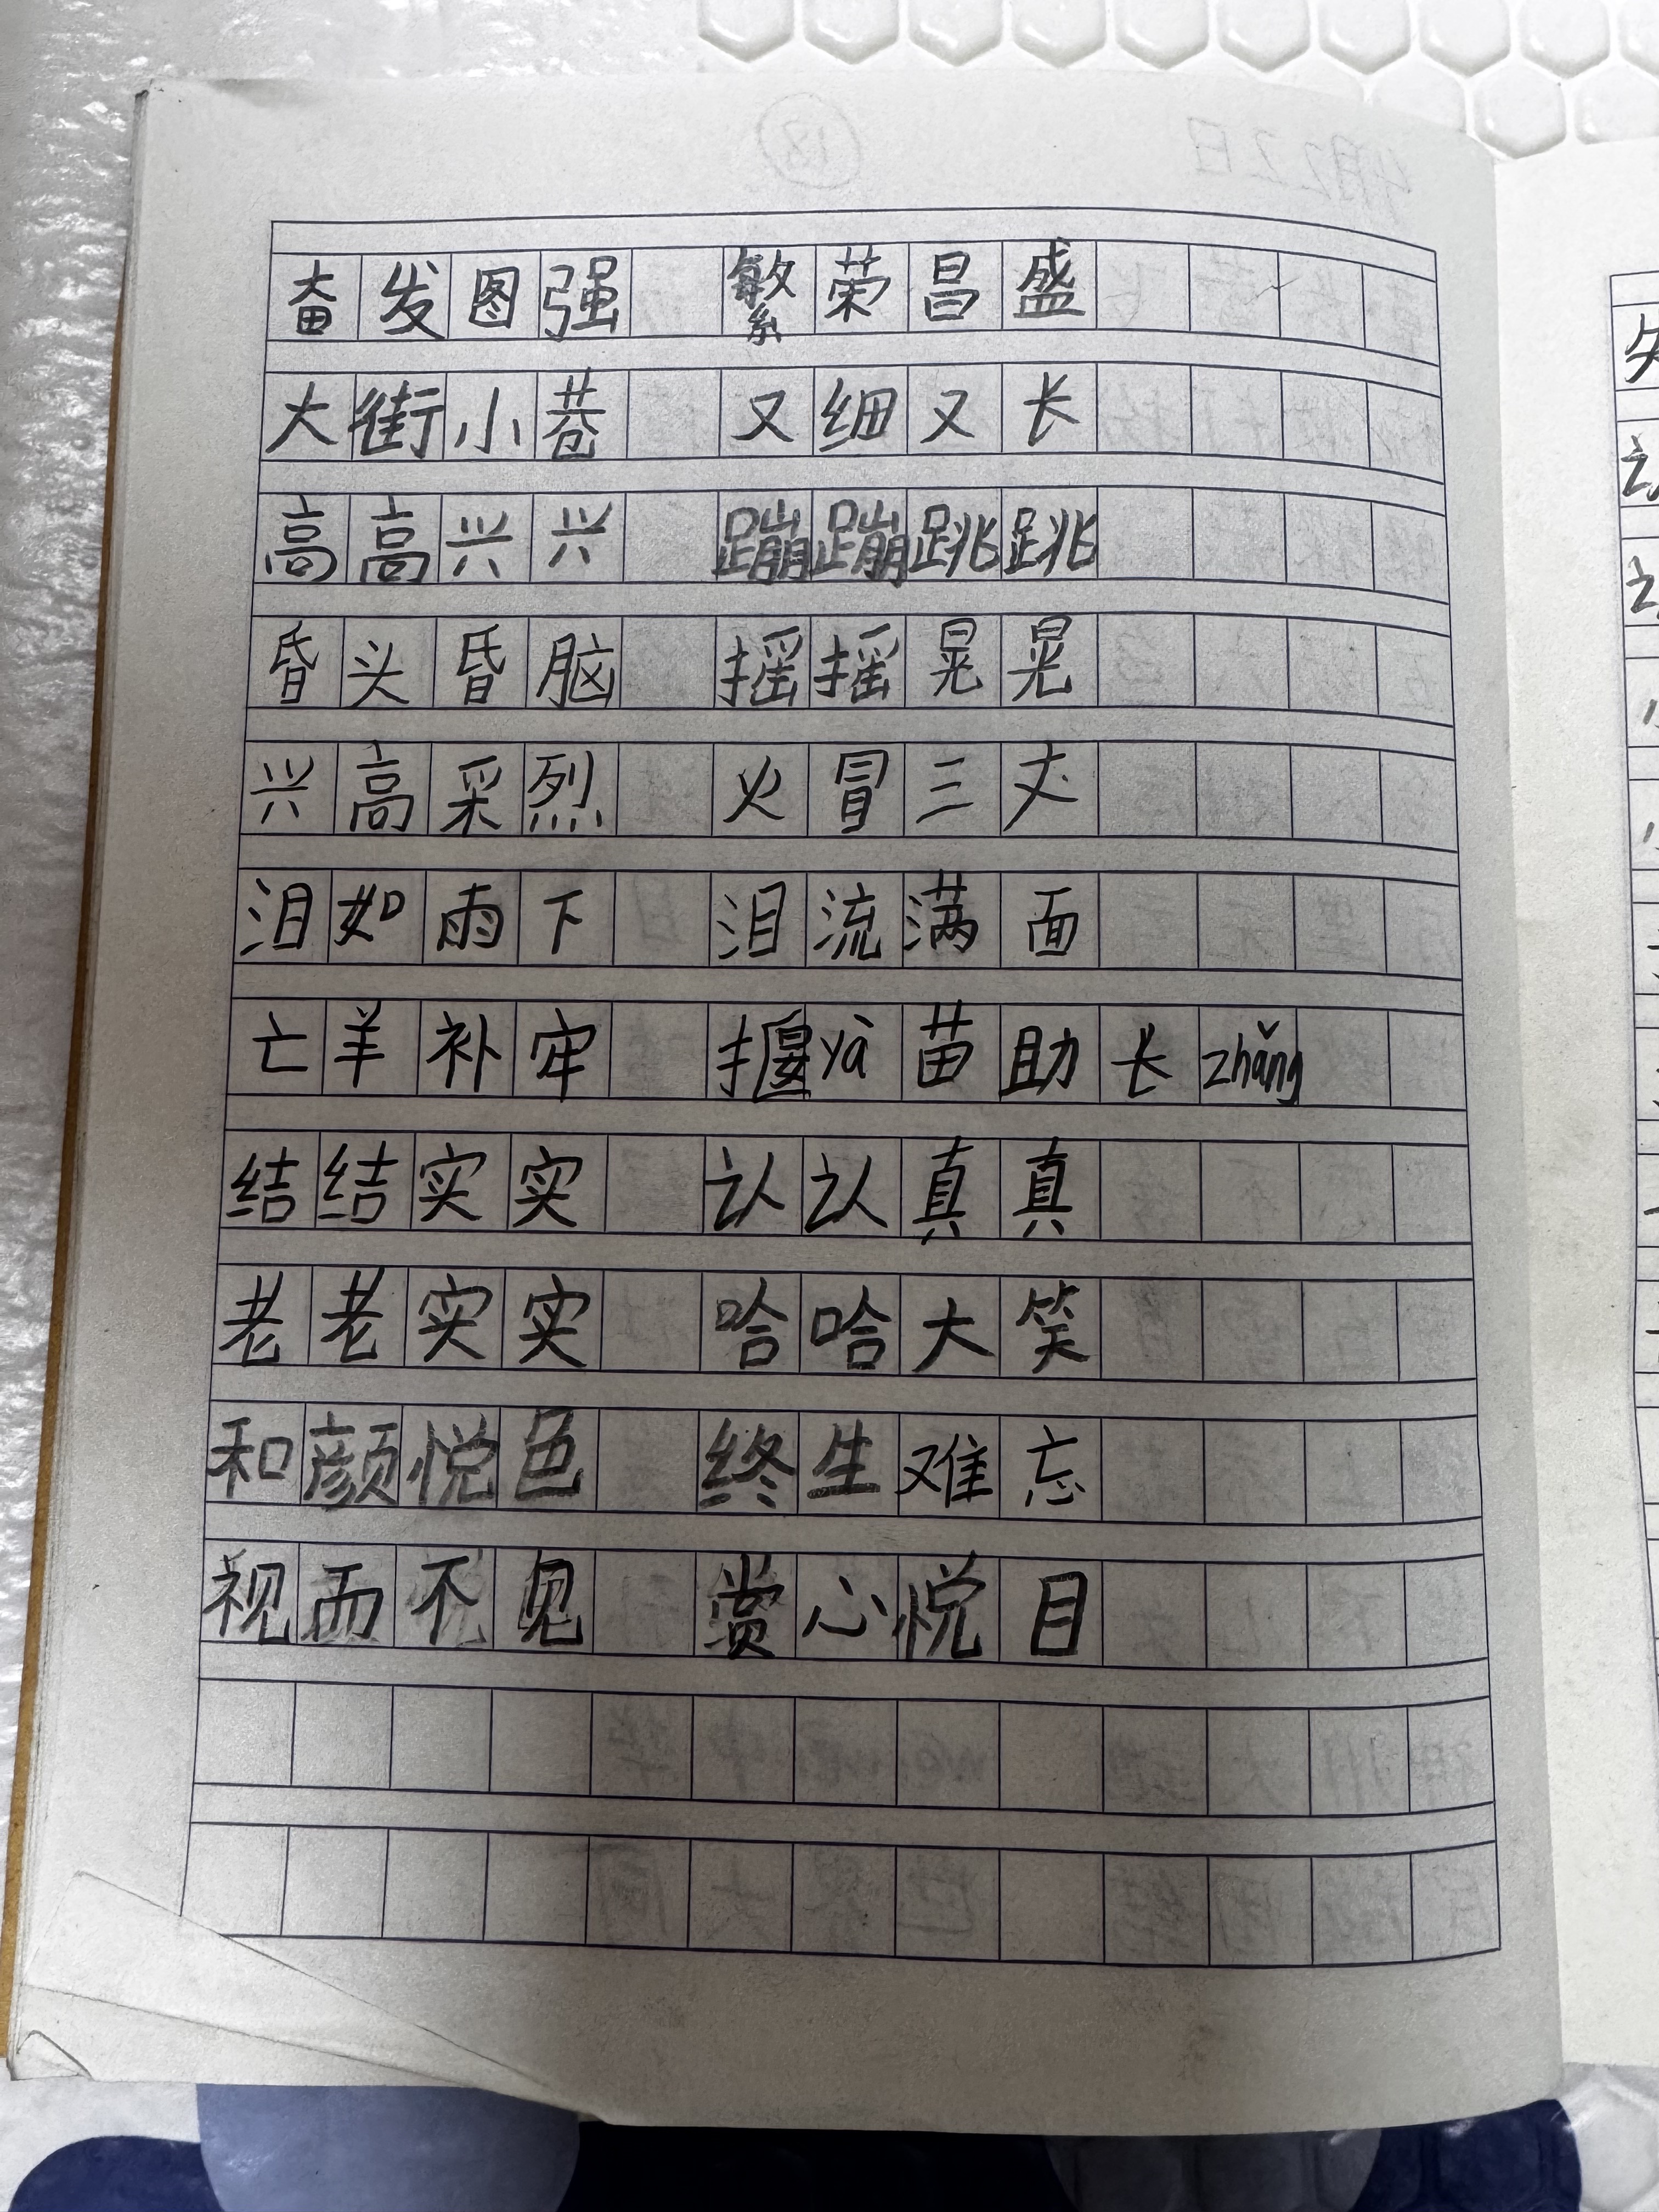 奋发图强 繁荣昌盛
大街小巷 又细又长
高高兴兴 蹦蹦跳跳
昏头昏脑 摇摇晃晃
兴高采烈 火冒三丈
泪如雨下 泪流满面
亡羊补牢 揠yà苗助长zhǎng
结结实实 认认真真
老老实实 哈哈大笑
和颜悦色 终生难忘
视而不见 赏心悦目